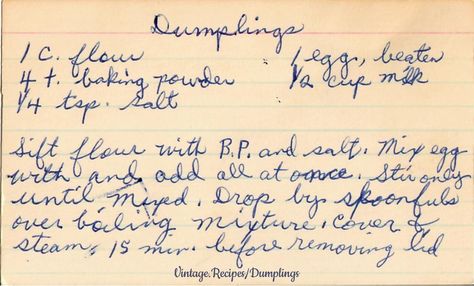 Dumplings
1 C. flour 1 egg, beaten
4 t. baking powder 1/2 cup milk
1/4 tsp. salt
Sift flour with B.P. and salt. Mix egg
with and add all at once. Stir only
until mixed. Drop by spoonfuls
over boiling mixture. Cover &
steam 15 min. before removing lid
Vintage.Recipes/Dumplings